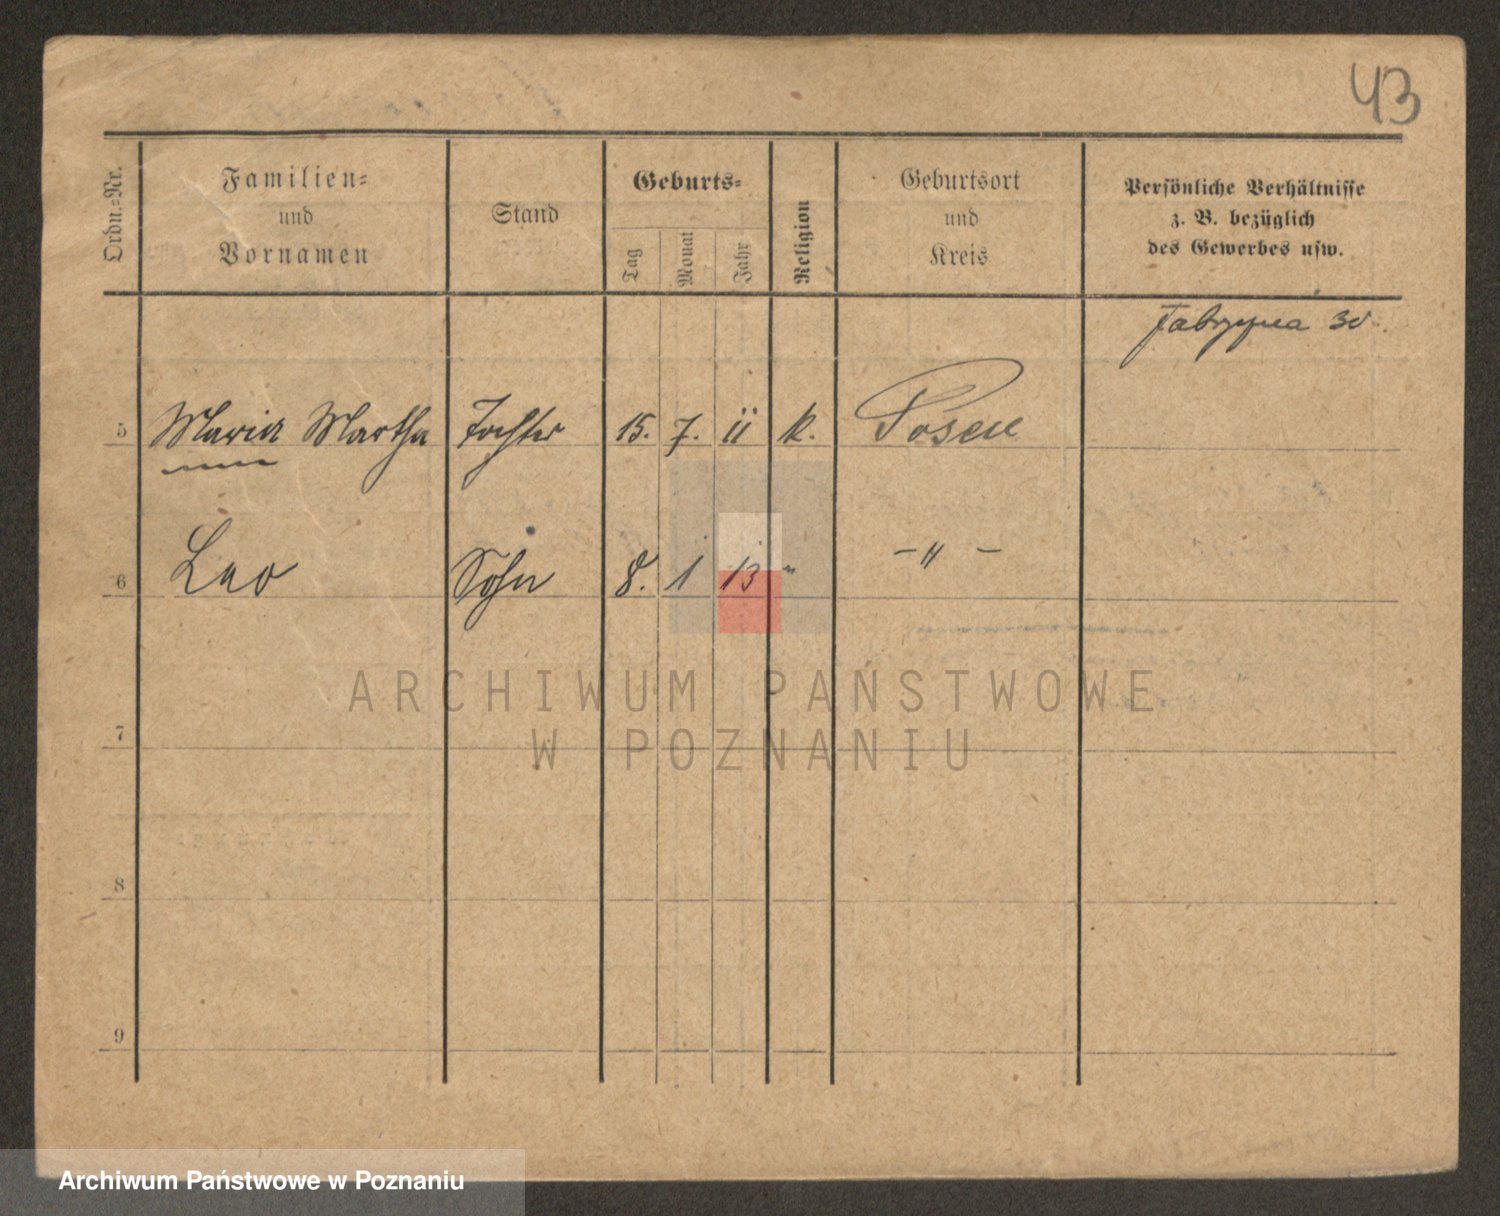 43
Ordn.-Nr.
Familien-
und
Vornamen
Stand
Geburts-
Tag
Monat
Jahr
Religion
Geburtsort
und
Kreis
Persönliche Verhältnisse
z. B. bezüglich
des Gewerbes usw.
30
5 Maria Martha Tochter 15. 7. 11 k. Posen
6 Leo Sohn 8. 1 13 " -"-
ARCHIWUM PAŃSTWOWE
W POZNANIU
7
8
9
Archiwum Państwowe w Poznaniu